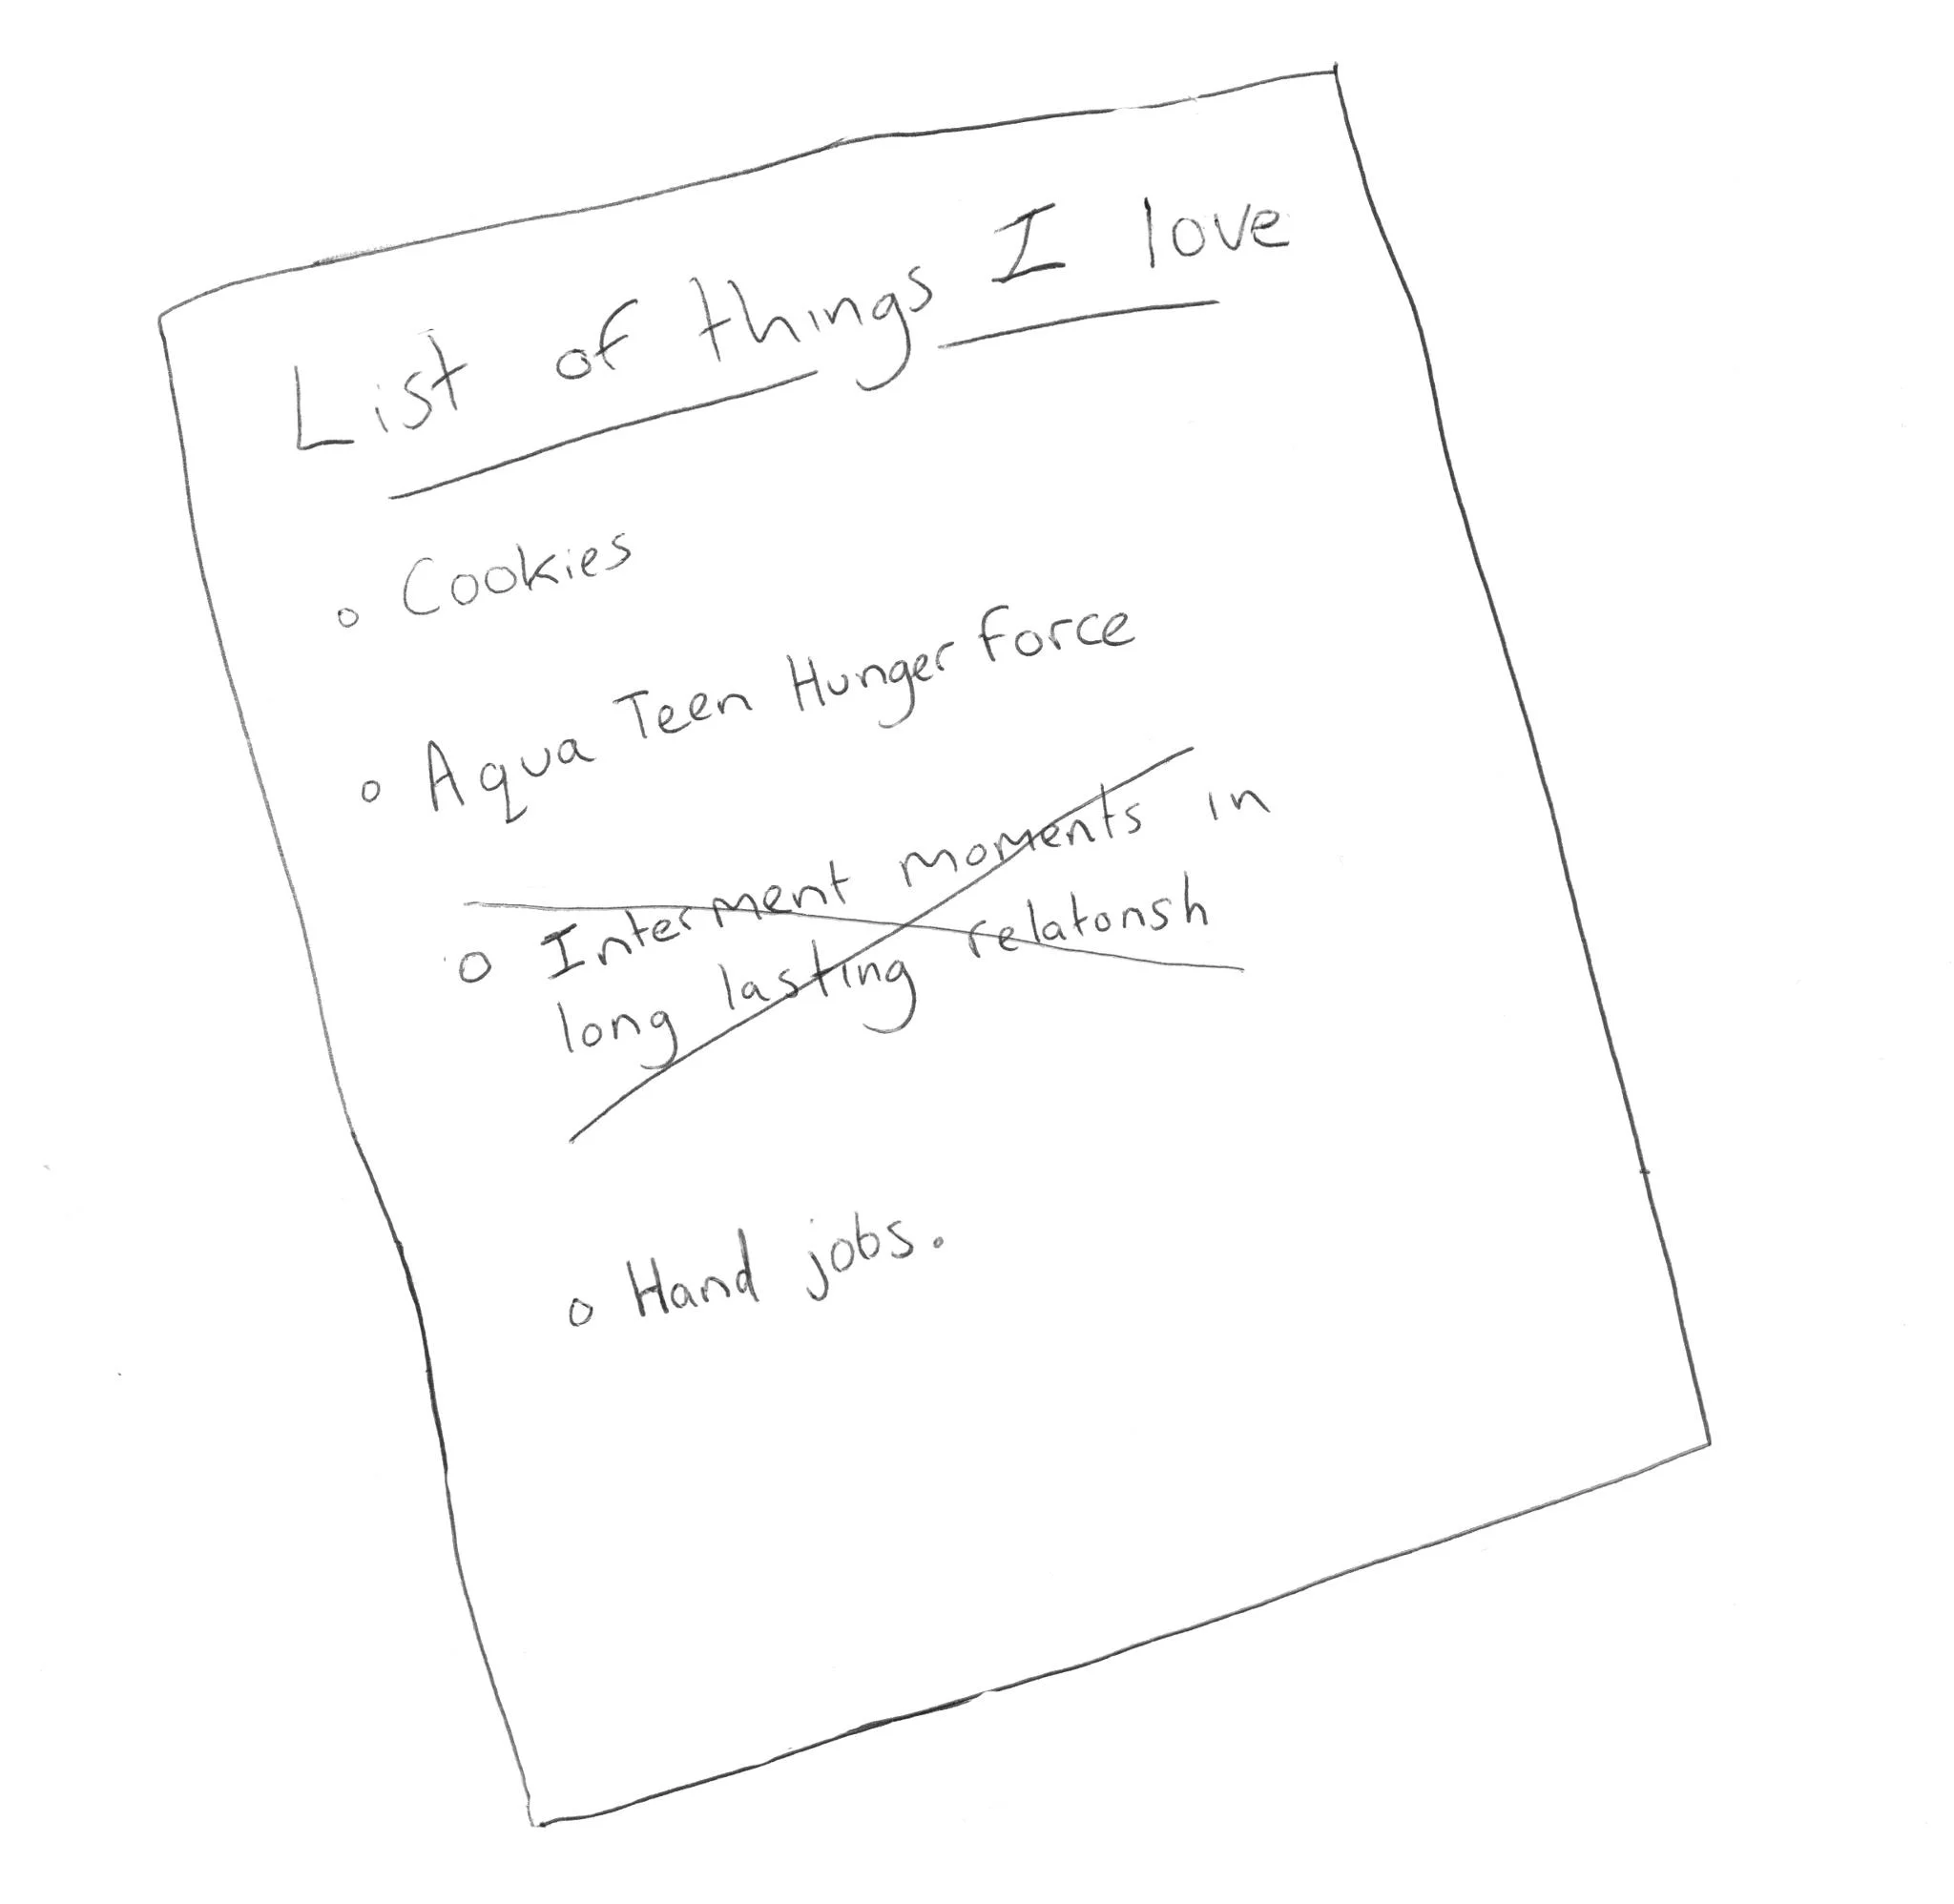 List of things I love
Cookies
Aqua Teen Hunger force
Interment moments in
long lasting relatonsh
Hand jobs.